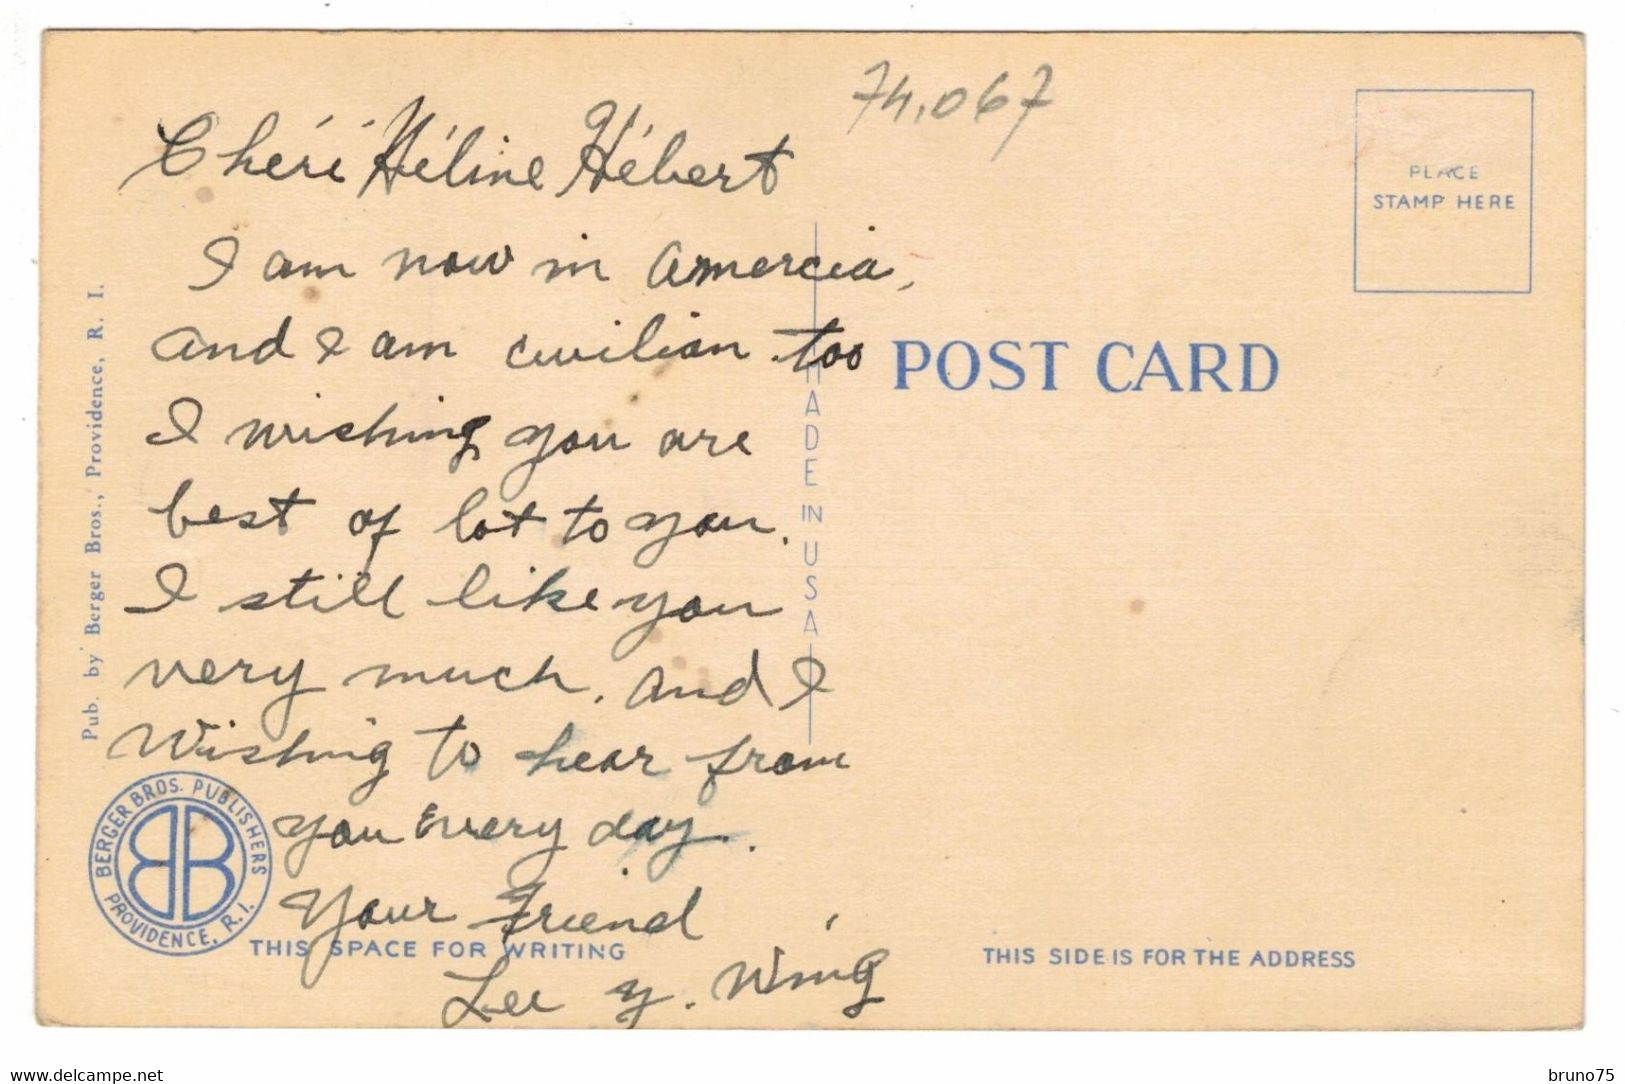 74,067
Chéri Héline Hébert
I am now in amercia,
and I am civilian too
I wishing you are
best of lot to you.
I still like you
very much, and I
Wishing to hear from
you Every day.
Your Friend
Lee y. Wing
PLACE
STAMP HERE
POST CARD
MADE IN USA
Pub. by Berger Bros., Providence, R. I.
BERGER BROS. PUBLISHERS
PROVIDENCE, R.I.
BB
THIS SPACE FOR WRITING
THIS SIDE IS FOR THE ADDRESS
www.delcampe.net
bruno75